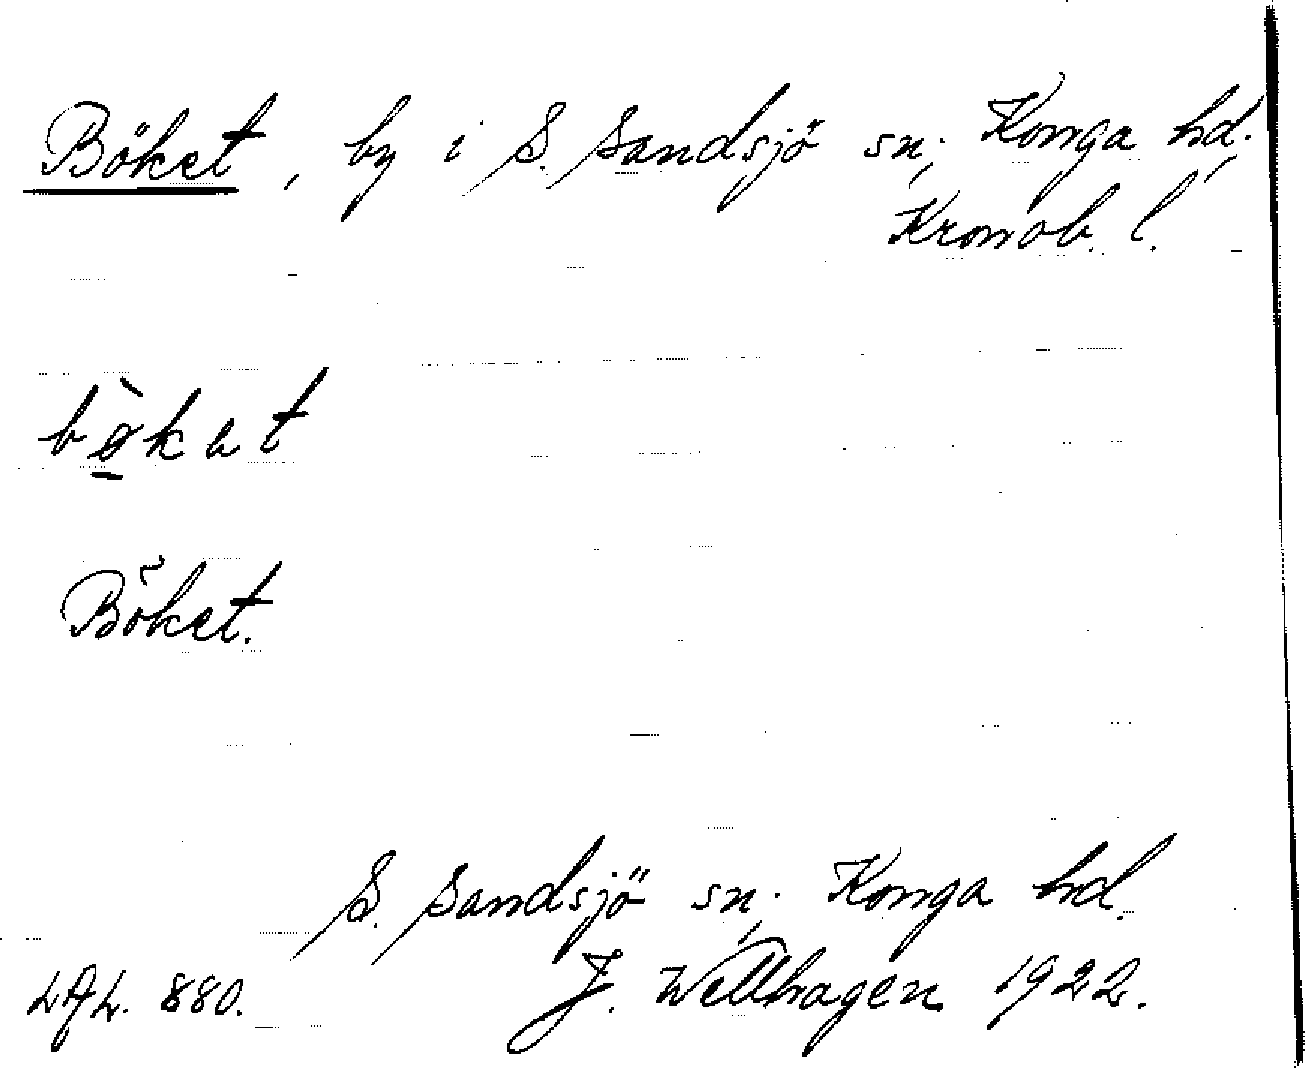 Böket, by i S. Sandsjö sn; Konga hd;
Kronob. l.
bø̠̀kat
Böket.
S. Sandsjö sn; Konga hd.
J. Wellhagen 1922.
880.